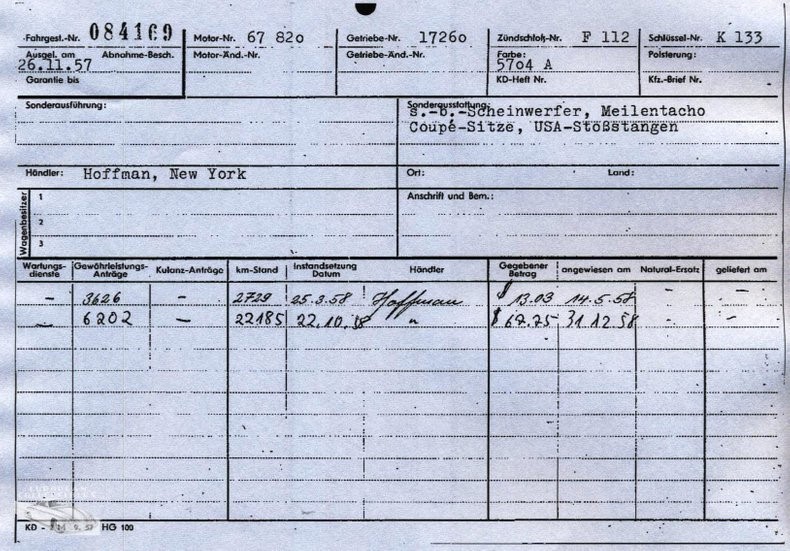 Fahrgest.-Nr. 084169 Motor-Nr. 67 820 Getriebe-Nr. 17260 Zündschloß-Nr. F 112 Schlüssel-Nr. K 133
Ausgel. am Abnahme-Besch. Motor-Änd.-Nr. Getriebe-Änd.-Nr. Farbe: Polsterung:
26.11.57 5704 A
Garantie bis KD-Heft Nr. Kfz.-Brief Nr.
Sonderausführung: Sonderausstattung:
s.-b.-Scheinwerfer, Meilentacho
Coupé-Sitze, USA-Stoßstangen
Händler: Hoffman, New York Ort: Land:
Wagenbesitzer 1 Anschrift und Bem.:
2
3
Wartungs-dienste Gewährleistungs-Anträge Kulanz-Anträge km-Stand Instandsetzung Datum Händler Gegebener Betrag angewiesen am Natural-Ersatz geliefert am
— 3626 — 2729 25.3.58 Hoffman $ 13.03 14.5.58 — —
— 6202 — 22185 22.10.58 " $ 67.75 31.12.58 — —
KD - 9.57 HG 100